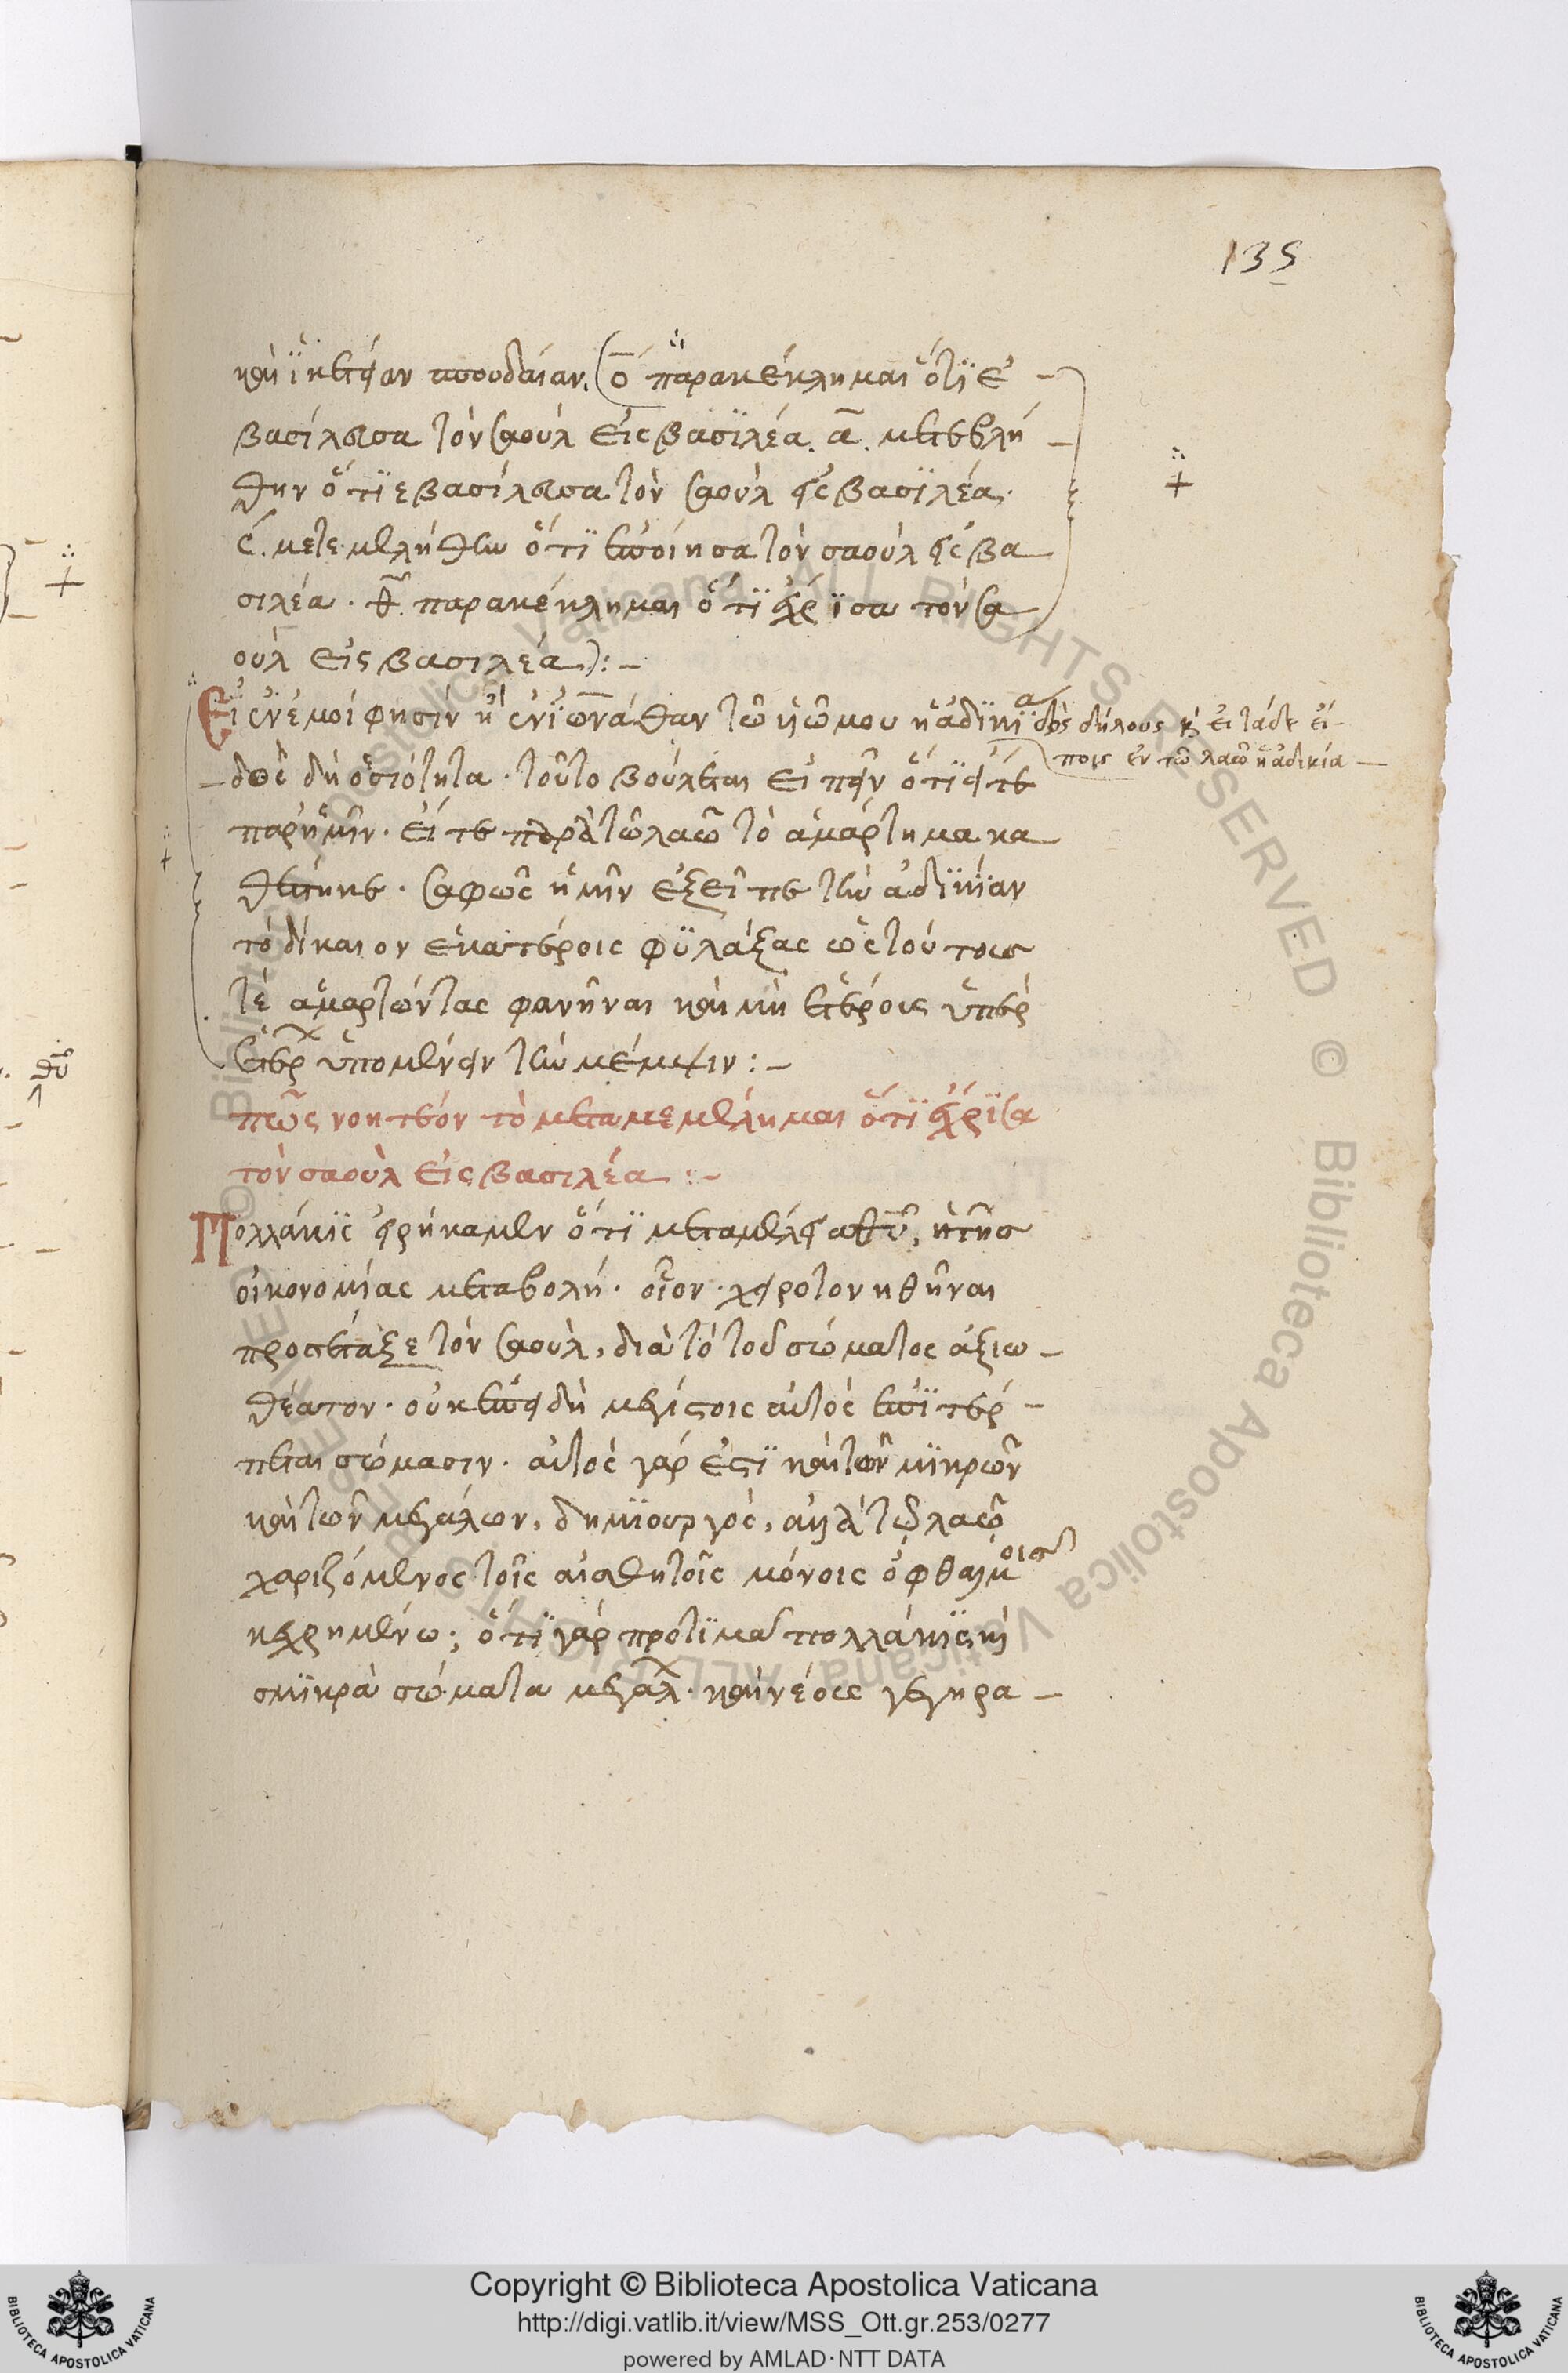 135
καὶ ἱκετείαν σπουδαίαν. (ο̅ παρακέκλημαι ὅτι ἐ-
βασίλευσα τὸν σαοὺλ εἰς βασιλέα. α̅. μετεβλή-
θην ὅτι ἐβασίλευσα τὸν σαοὺλ εἰς βασιλέα.
ς. μετεμελήθην ὅτι ἐποίησα τὸν σαοὺλ εἰς βα
σιλέα. θ̅. παρακέκλημαι ὅτι ἔχρισα τὸν σα
οὺλ εἰς βασιλέα):-
Εἰ ἐν ἐμοί φησιν ἢ ἐν ἰωνάθαν τῶ υἱῶ μου ἡ ἀδικία
δὸς δήλους κ εἰ τάδε εἴ-
ποις ἐν τῶ λαῶ ἡ ἀδικία -
- δὸς δὴ ὁσιότητα. τοῦτο βούλεται εἰπεῖν ὅτι εἴτε
παρ' ἡμῖν. εἴτε παρὰ τῶ λαῶ τὸ ἁμάρτημα κα
θέστηκε. σαφῶς ἡμῖν ἐξεῖπε τὴν ἀδικίαν
τὸ δίκαιον ἑκατέροις φυλάξας ὡς τούτους
τὲ ἁμαρτώντας φανῆναι καὶ μὴ ἑτέροις ὑπὲρ
ἑτέρ ὑπομένειν τὴν μέμψιν:-
πῶς νοητέον τὸ μεταμεμέλημαι ὅτι ἔχρισα
τὸν σαοὺλ εἰς βασιλέα:-
Πολλάκις εἰρήκαμεν ὅτι μεταμέλεια θυ, ἡ τῆς
οἰκονομίας μεταβολή. οἷον. χειροτονηθῆναι
προσέταξε τὸν σαούλ, διὰ τὸ τοῦ σώματος ἀξιο-
θέατον. οὐκ ἐπειδὴ μεγίστοις αὐτὸς ἐπιτέρ-
πεται σώμασιν. αὐτὸς γάρ ἐστι καὶ τῶν μικρῶν
καὶ τῶν μεγάλων, δημιουργὸς, ἀλλὰ τῶ λαῶ
χαριζόμενος τοῖς αἰσθητοῖς μόνοις ὀφθαλμοῖς
κεχρημένω; ὅτι γὰρ προτιμᾶ πολλάκις κ
σμικρὰ σώματα μεγάλ. καὶ νέους γεγηρα-
Copyright © Biblioteca Apostolica Vaticana
http://digi.vatlib.it/view/MSS_Ott.gr.253/0277
powered by AMLAD·NTT DATA